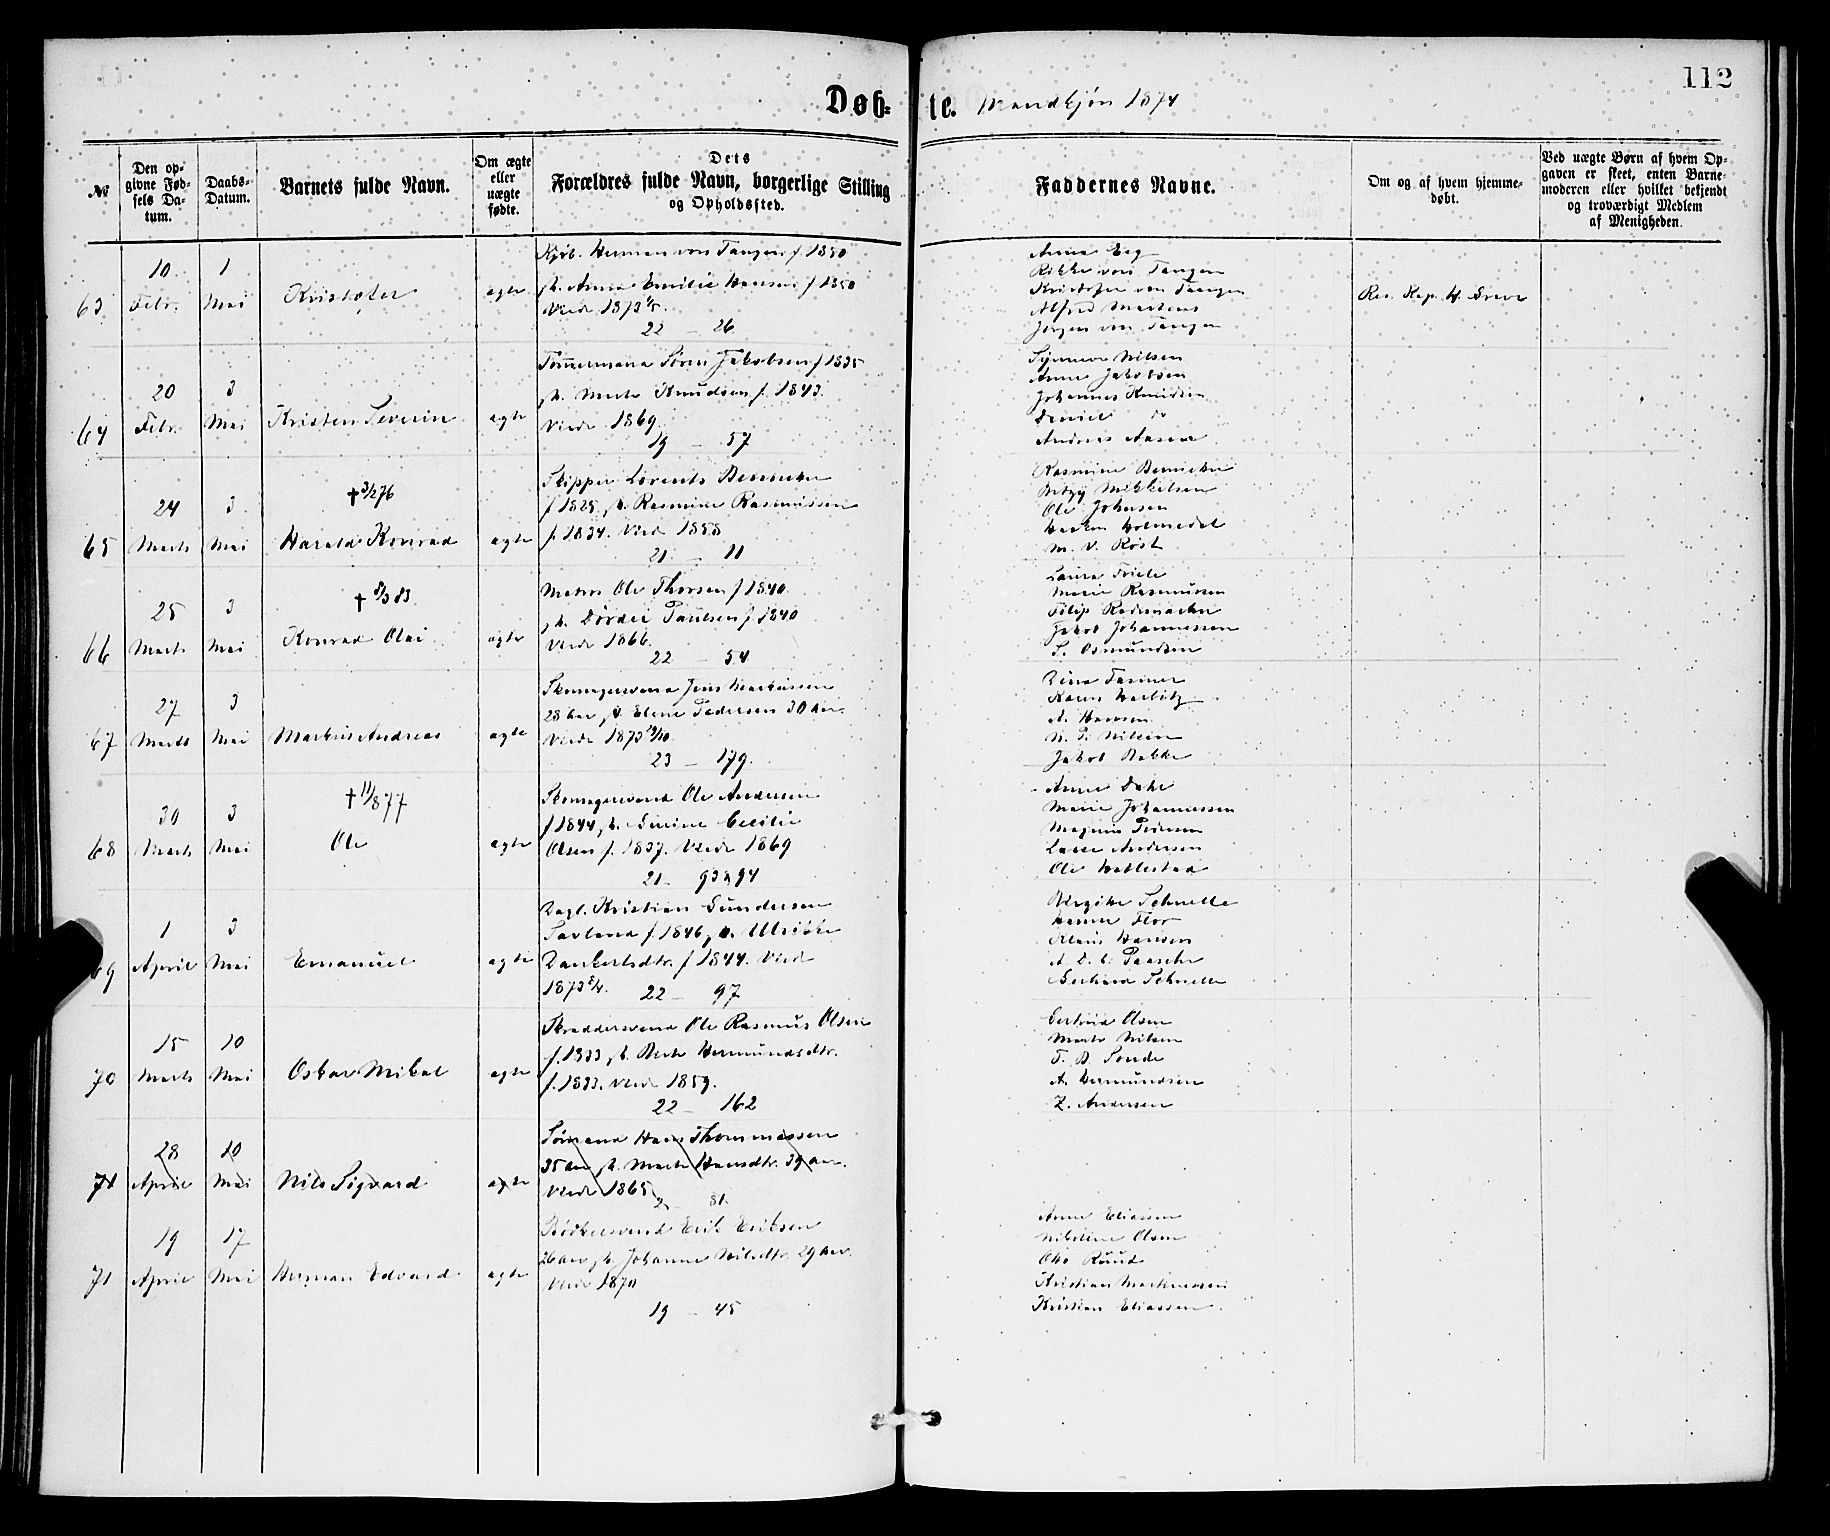 112
Døb-
te. Mandkjøn 1874
№
Den op-
givne Fød-
sels Da-
tum.
Daabs-
Datum.
Barnets fulde Navn.
Om ægte
eller
uægte
fødte.
Dets
Forældres fulde Navn, borgerlige Stilling
og Opholdssted.
Faddernes Navne.
Om og af hvem hjemme-
døbt.
Ved uægte Børn af hvem Op-
gaven er skeet, enten Barne-
moderen eller hvilket bekjendt
og troværdigt Medlem
af Menigheden.
63
10
Febr.
1
Mai
Kristofer
ægte
Kjøb. Herman von Tangen f. 1850
h. Anna Emilie Hansen f 1850
Viede 1873
22 - 26
Anna Eeg
Rikke von Tangen
Kristofer von Tangen
Alfred Martens
Jørgen von Tangen
Res. Kap. H. Greve
64
20
Febr.
3
Mai
Kristen Severin
ægte
Tømmermand Søren Jakobsen f 1835
h. Marte Knudsen f. 1843.
Viede 1869.
19 - 57
Nilsen
Anne Jakobsen
Johannes Knudsen
Daniel do
Andreas Aasene
65
24
Marts
3
Mai
✝ 3/2 76
Harald Konrad
ægte
Skipper Lorents Bennecke
f 1825, h. Rasmine Rasmussen
f. 1834. Viede 1858
21 - 11
Rasmine Bennecke
Betzy Mikkelsen
Ole Johnsen
Haakon Holmedal
M. V. Rost
66
25
Marts
3
Mai
✝ 8/3 83
Konrad Olai
ægte
Matros Ole Thorsen f 1840.
h. Dordei Paulsen f. 1840
Viede 1866.
22 - 54
Laura Friele
Marie Rasmussen
Filip Rademacher
Jakob Johannessen
S. Osmundsen
67
27
Marts
3
Mai
Markus Andreas
ægte
Skomagersvend Jens Markussen
28 aar, h. Elene Pedersen 30 aar.
Viede 1873
23 - 179.
Karen Herlitz
A. Hansen
N. P. Nilsen
Jakob Bakke
68
30
Marts
3
Mai
✝ 11/8 77
Ole
ægte
Skomagersvend Ole Andersen
f 1844, h. Serine Cecilie
Olsen f. 1837. Viede 1869
21 - 93 & 94
Anne Dahe
Marie Johannessen
Magnus Pedersen
Lasse Andersen
Ole Hatlestad
69
1
April
3
Mai
Emanuel
ægte
Dagl. Kristian Gundersen
f 1846, h. Ulrikke
Dankertsdtr. f 1844. Viede
1873
22 - 97
Birgitte Schnelle
Hanna Flor
Klaus Hansen
A. D. C. Paasche
Gerhard Schnelle
70
15
Marts
10
Mai
Oskar Mikal
ægte
Skræddersvend Ole Rasmus Olsen
f. 1833, h. Berte Hermundsdtr.
f. 1833. Viede 1859.
22 - 162
Gertrud Olsen
Marte Nilsen
T. B. Sonde
A. Hermundsen
Z. Andersen
71
28
April
10
Mai
Nils Sigvard
ægte
Sømand Hans Thommassen
35 aar, h. Marte Hansdtr. 39 aar.
Viede 1865
2 81
71
19
April
17
Mai
Herman Edvard
ægte
Bødkersvend Erik Eriksen
26 aar, h. Johanne Nilsdtr. 29 aar.
Viede 1870
19 - 45
Anne Eliassen
Nikoline Olsen
Otto Ruud
Kristian Markussen
Kristian Eliassen